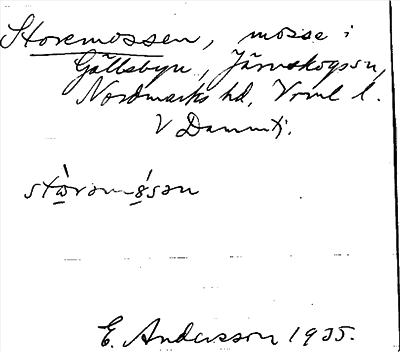 Storemossen, mosse i
Gällsbyn, Järnskogs sn,
Nordmarks hd, Vrml l.
V Dammtj.
stὼrəmósən
E. Andersson 1935.